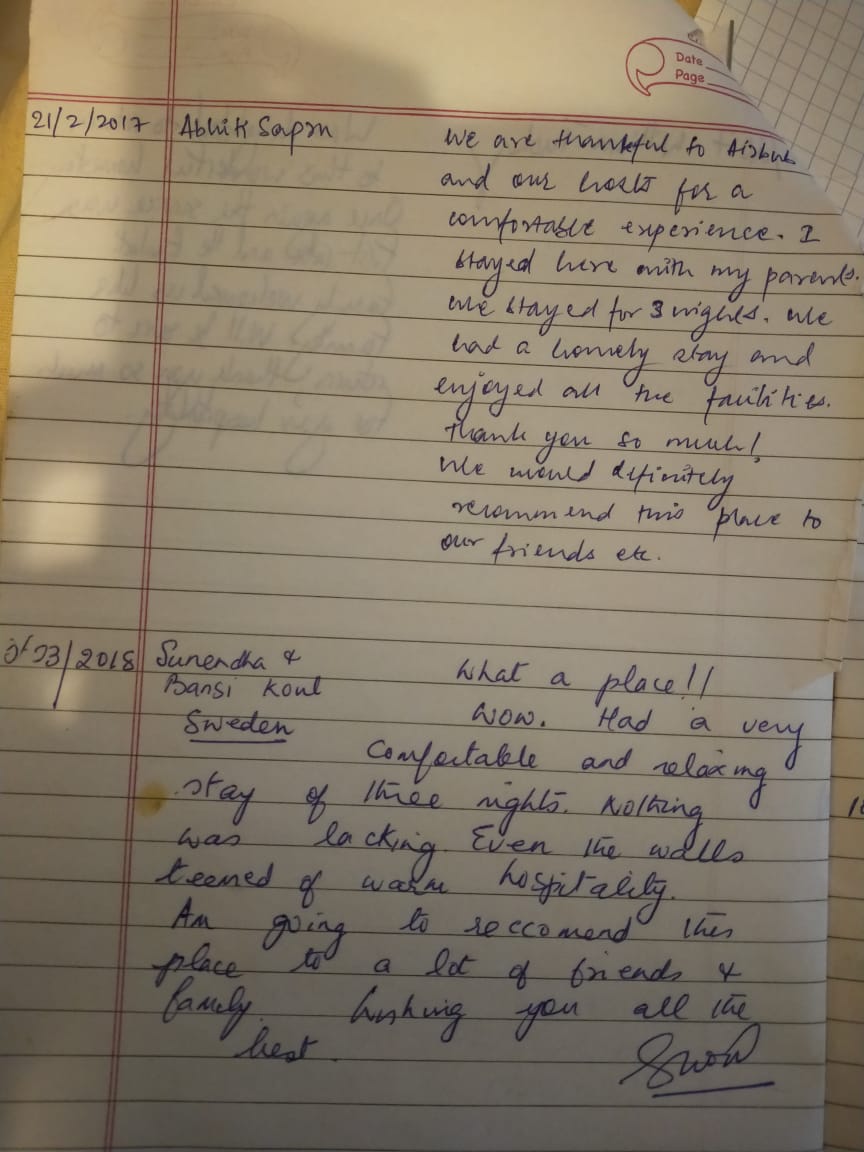 Date
Page
21/2/2017 Abhik We are thankful to
and our hosts for a
comfortable experience. I
stayed here with my parents.
We stayed for 3 nights. We
had a homely stay and
enjoyed all the facilities.
Thank you so much!
We would definitely
recommend this place to
our friends etc.
03/2018 Sunendha & What a place!!
Bansi Koul Wow. Had a very
Sweden
Comfortable and relaxing
stay of three nights. Nothing
was lacking. Even the walls
teemed of warm hospitality.
Am going to reccomend this
place to a lot of friends &
family. Wishing you all the
best.